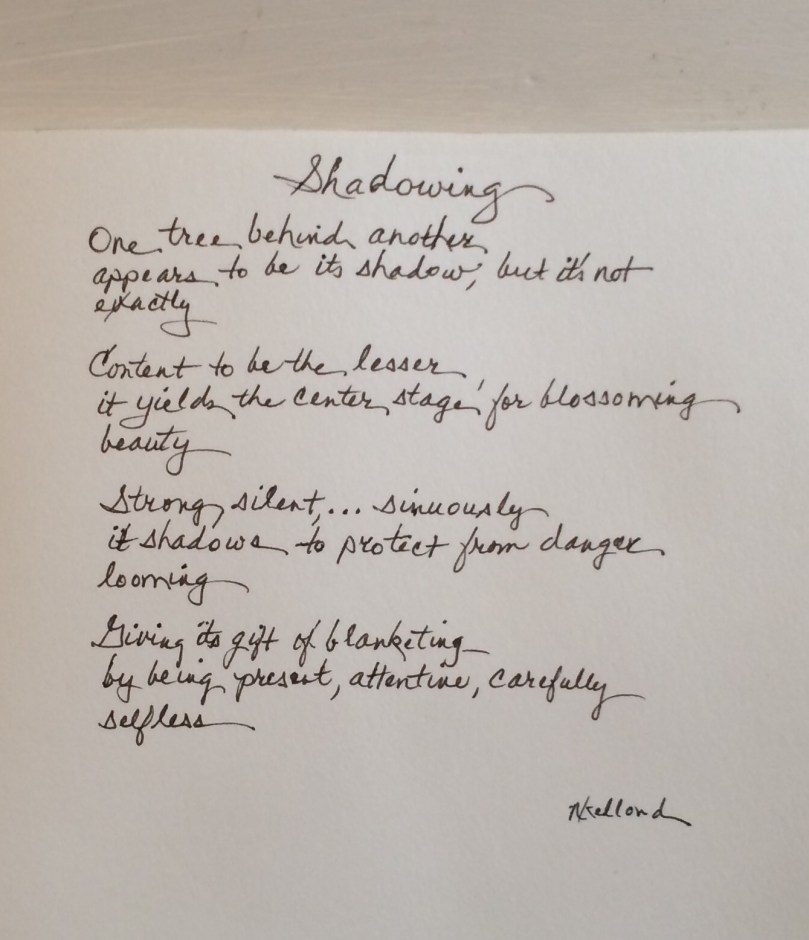 Shadowing
One tree behind another
appears to be its shadow, but it's not
exactly
Content to be the lesser
it yields the center stage for blossoming
beauty
Strong, silent,... sinuously
it shadows to protect from danger
looming
Giving its gift of blanketing
by being present, attentive, carefully
selfless
NKellond